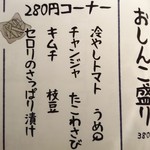 おしんこ盛り
380
280円コーナー
冷やしトマト
うめ
チャンジャ
たこわさび
キムチ
枝豆
セロリのさっぱり漬け